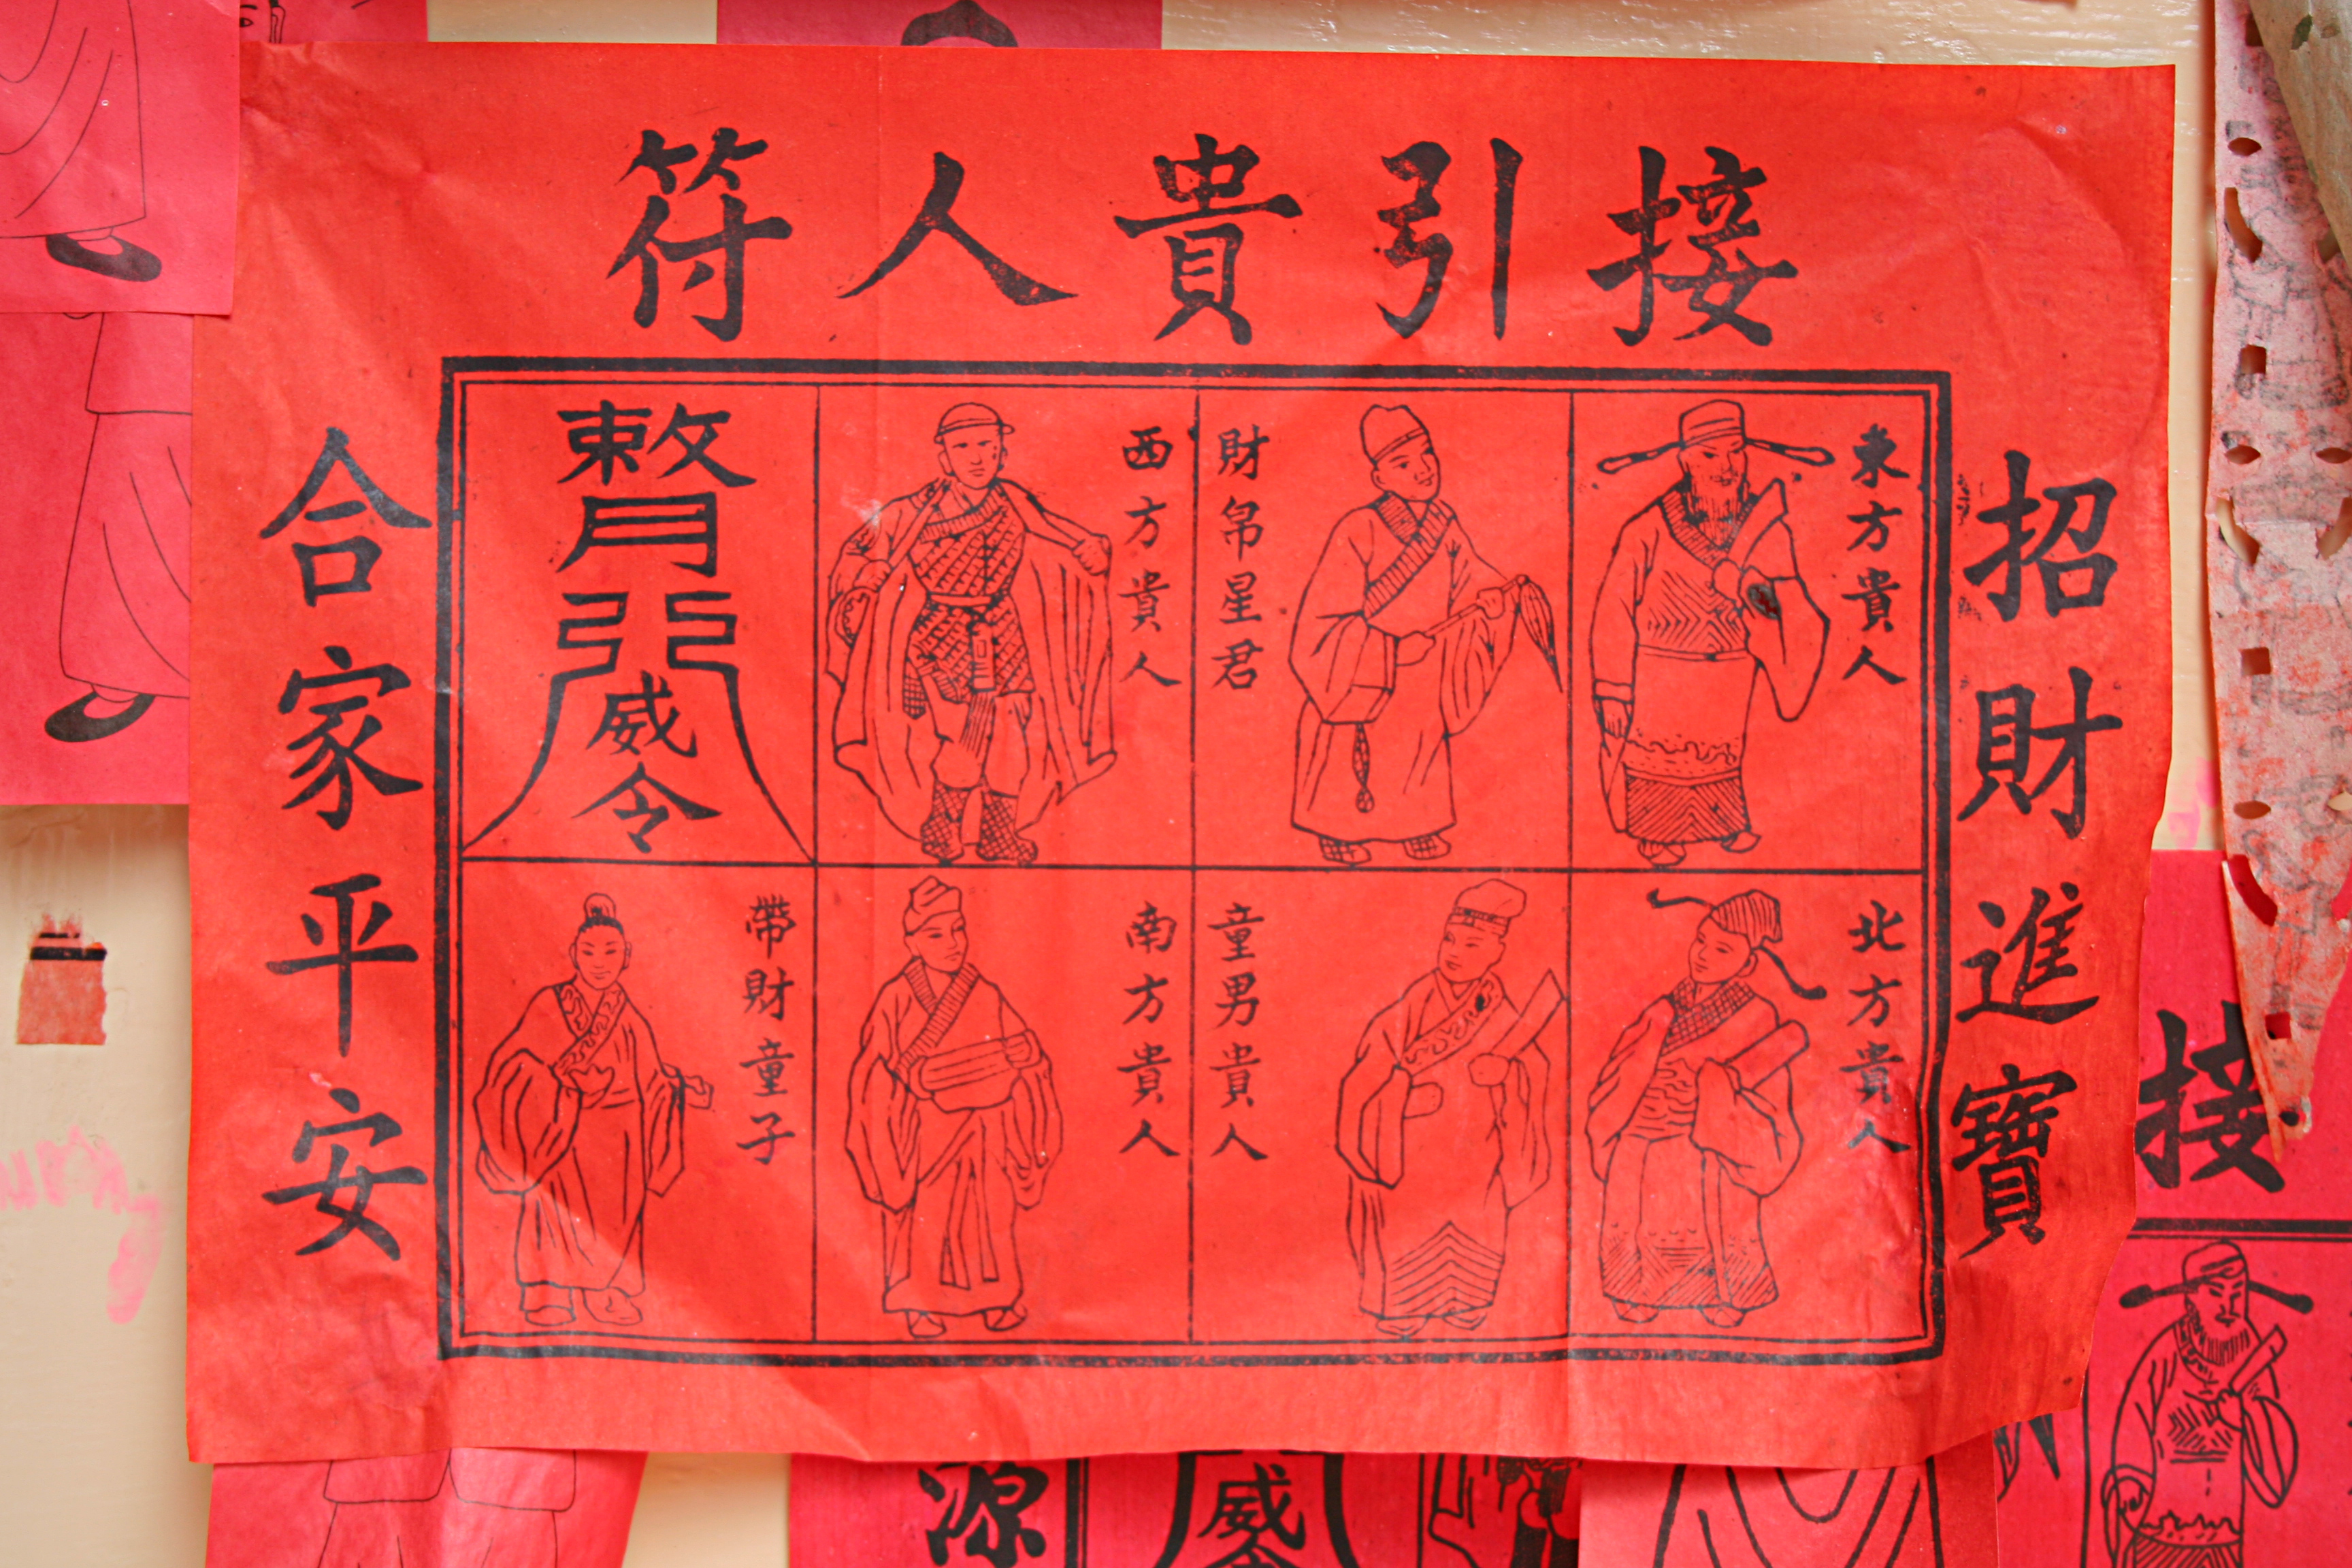 接引貴人符
招財進寶
東方貴人
財帛星君
西方貴人
敕
威令
北方貴人
童男貴人
南方貴人
帶財童子
合家平安
接
源
威